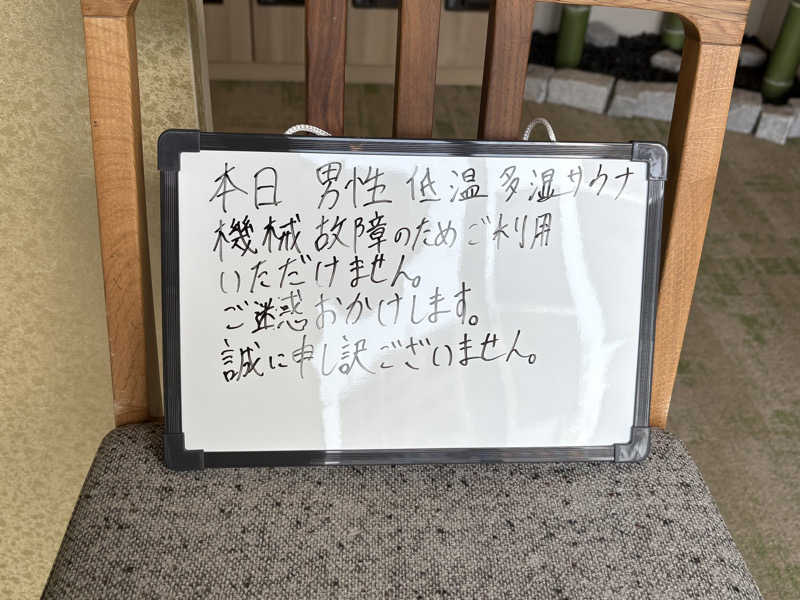 本日 男性 低温 多湿サウナ
機械故障のためご利用
いただけません。
ご迷惑おかけします。
誠に申し訳ございません。